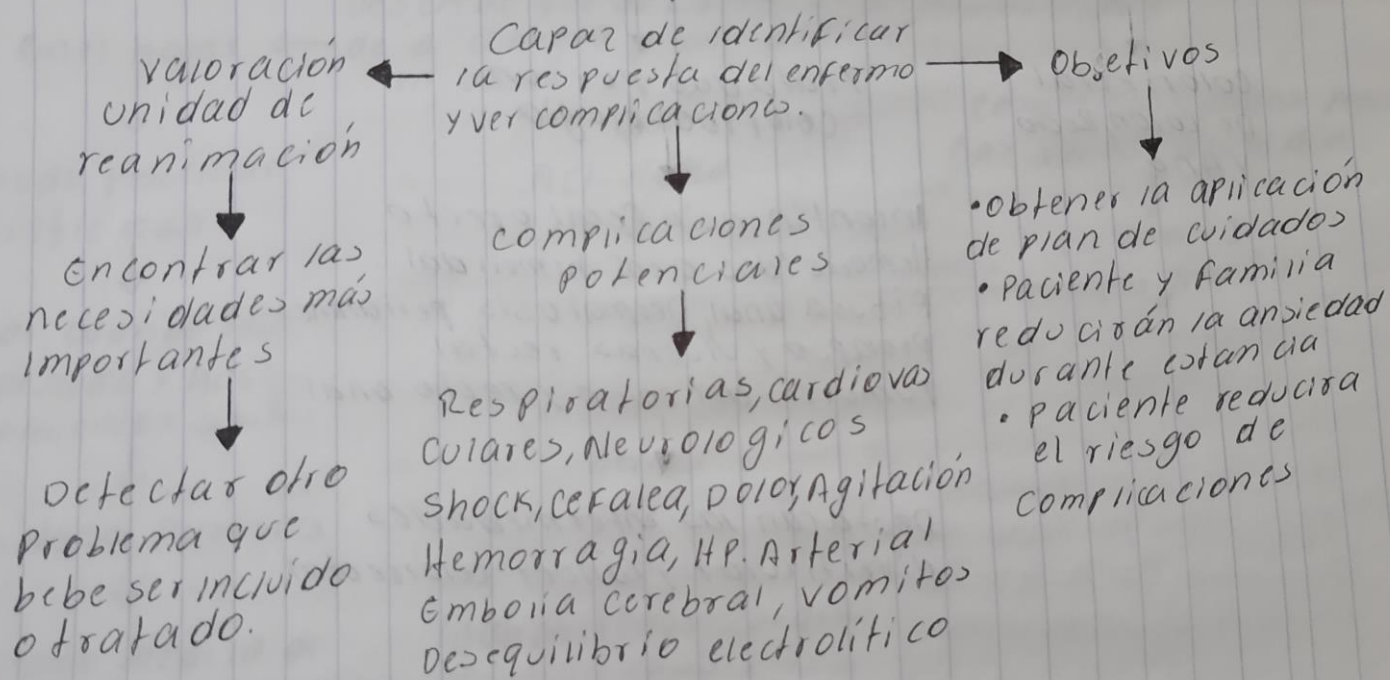 Capaz de identificar
la respuesta del enfermo
y ver complicaciones.
Valoración
unidad de
reanimación
Encontrar las
necesidades más
importantes
Detectar otro
Problema que
bebe ser incluido
o tratado.
complicaciones
potenciales
Respiratorias, cardiovas
culares, Neurologicos
Shock, cefalea, Dolor, Agitación
Hemorragia, HP. Arterial
Embolia cerebral, vomitos
Desequilibrio electrolítico
Objetivos
• Obtener la aplicación
de plan de cuidados
• Paciente y familia
reducirán la ansiedad
durante estancia
• Paciente reducira
el riesgo de
complicaciones